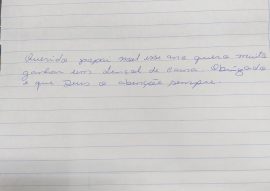 Querido papai noel esse ano quero muito
ganhar um lençol de cama. Obrigada
e que Deus o abençoe sempre.